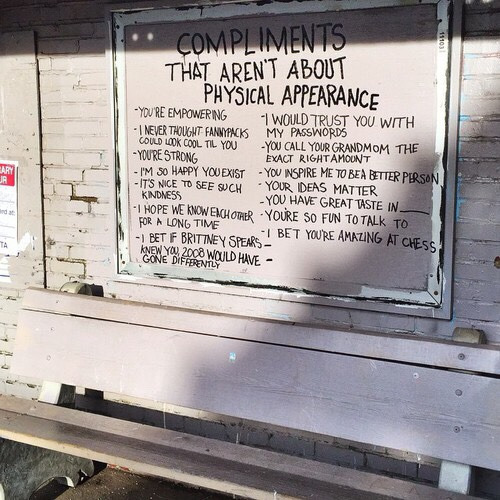 COMPLIMENTS
THAT AREN'T ABOUT
PHYSICAL APPEARANCE
-YOU'RE EMPOWERING
-I NEVER THOUGHT FANNYPACKS
COULD LOOK COOL TIL YOU
-YOU'RE STRONG
-I'M SO HAPPY YOU EXIST
-IT'S NICE TO SEE SUCH
KINDNESS
-I HOPE WE KNOW EACH OTHER
FOR A LONG TIME
-I BET IF BRITTNEY SPEARS
KNEW YOU, 2008 WOULD HAVE
GONE DIFFERENTLY
-I WOULD TRUST YOU WITH
MY PASSWORDS
-YOU CALL YOUR GRANDMOM THE
EXACT RIGHT AMOUNT
-YOU INSPIRE ME TO BE A BETTER PERSON
-YOUR IDEAS MATTER
-YOU HAVE GREAT TASTE IN____
-YOU'RE SO FUN TO TALK TO
- I BET YOU'RE AMAZING AT CHESS
-